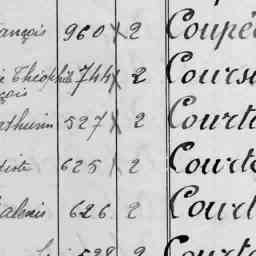 ançois 960 x 2 Coupé
Théophile 744 x 2 Cours
çois
athurin 527 x 2 Court
tiste 625 x 2 Courte
almis 626 2 Court
528 2 Courte